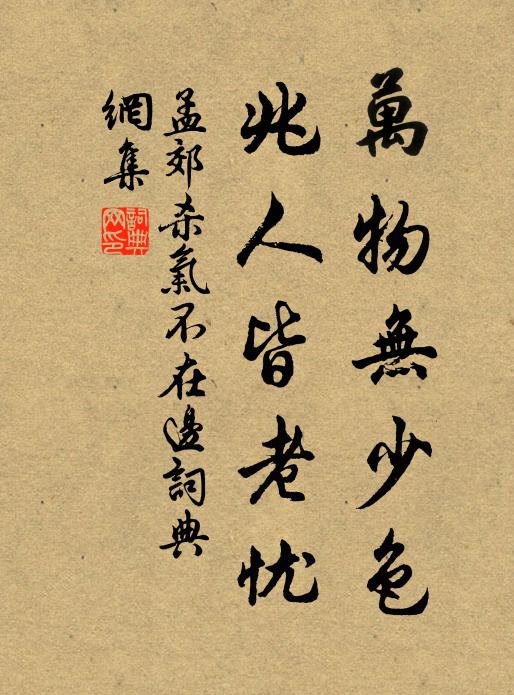 萬物無少色
兆人皆老忧
孟郊杀氣不在邊詞典
網集
詞典网印